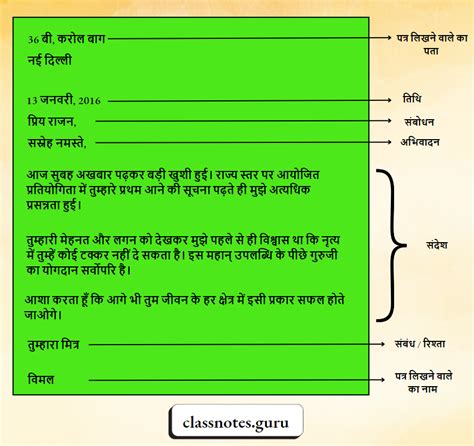 36 बी, करोल बाग
पत्र लिखने वाले का
पता
नई दिल्ली
13 जनवरी, 2016
तिथि
प्रिय राजन,
संबोधन
सस्नेह नमस्ते,
अभिवादन
आज सुबह अखबार पढ़कर बड़ी खुशी हुई। राज्य स्तर पर आयोजित
प्रतियोगिता में तुम्हारे प्रथम आने की सूचना पढ़ते ही मुझे अत्यधिक
प्रसन्नता हुई।
तुम्हारी मेहनत और लगन को देखकर मुझे पहले से ही विश्वास था कि नृत्य
में तुम्हें कोई टक्कर नहीं दे सकता है। इस महान् उपलब्धि के पीछे गुरुजी
का योगदान सर्वोपरि है।
संदेश
आशा करता हूँ कि आगे भी तुम जीवन के हर क्षेत्र में इसी प्रकार सफल होते
जाओगे।
तुम्हारा मित्र
संबंध / रिश्ता
विमल
पत्र लिखने वाले
का नाम
classnotes.guru